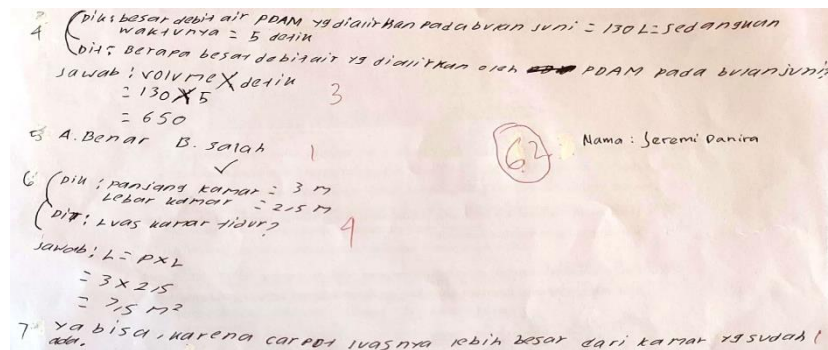 4 (Dik: besar debit air PDAM yg dialirkan pada bulan juni = 130 L = sedangkan
waktunya = 5 detik
(Dit: Berapa besar debit air yg dialirkan oleh PDAM pada bulan juni?
Jawab: volume X detik
= 130 X 5 3
= 650
5 A. Benar B. Salah 1
✓
62
Nama: Jeremi Danira
6 (Dik: panjang kamar = 3 m
Lebar kamar = 2,5 m
(Dit: Luas kamar tidur? 4
Jawab: L = P X L
= 3 X 2,5
= 7,5 m²
7 Ya bisa, karena carpet luasnya lebih besar dari kamar yg sudah 1
ada.